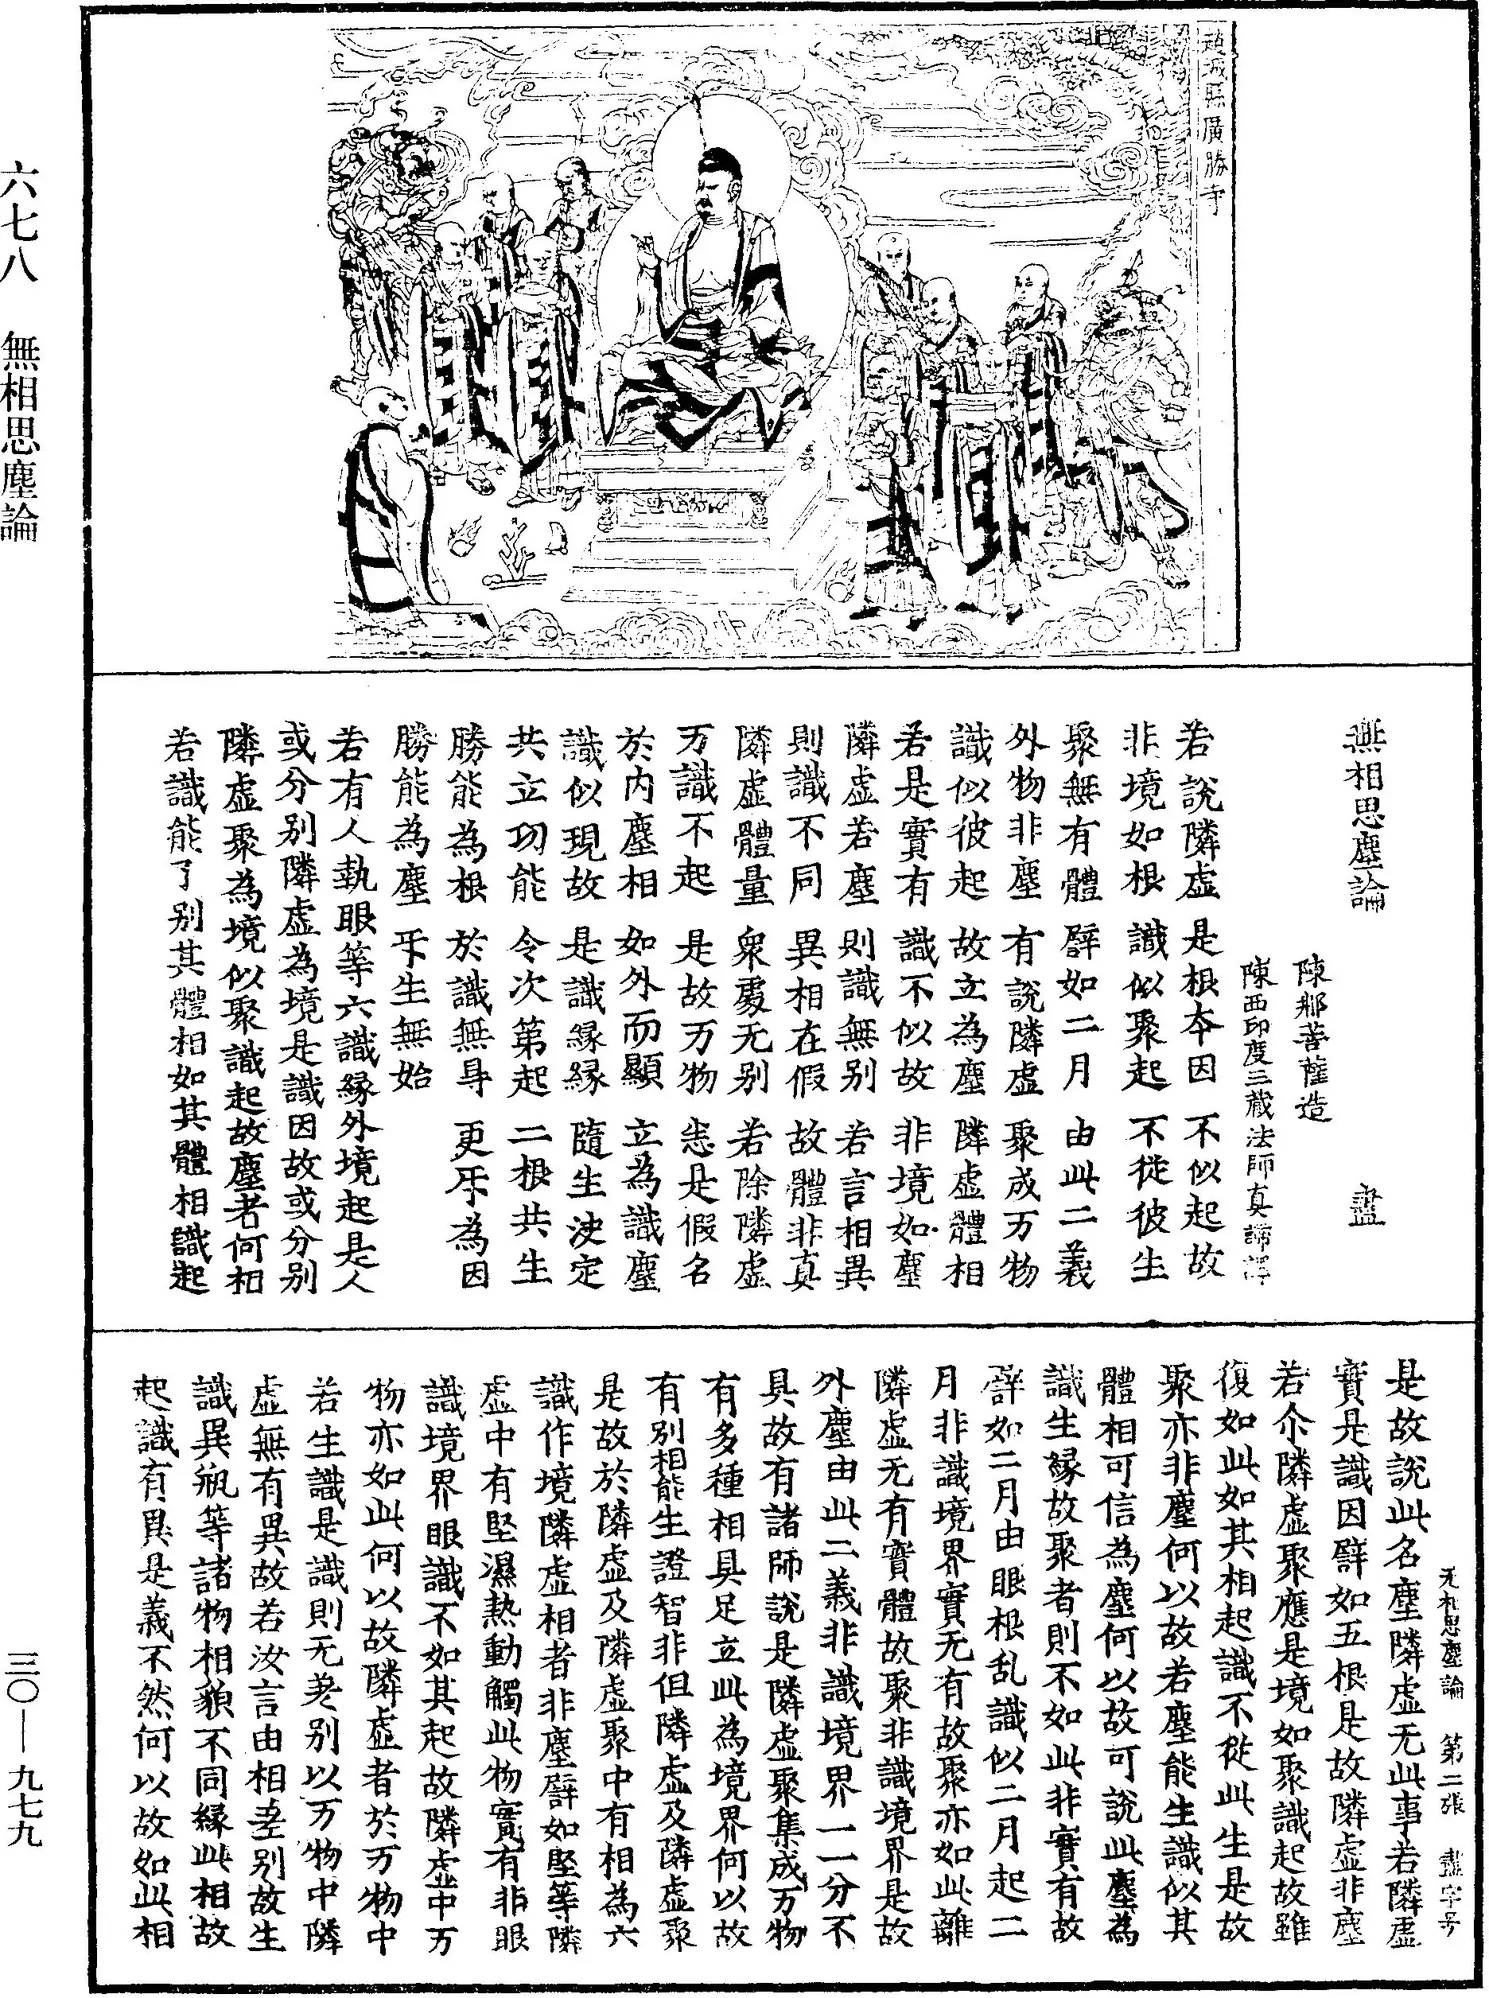 趙城縣廣勝寺
無相思塵論 盡
陳那菩薩造
陳西印度三藏法師真諦譯
若說隣虛 是根夲因 不似起故
非境如根 識似聚起 不從彼生
聚無有體 譬如二月 由此二義
外物非塵 有說隣虛 聚成万物
識似彼起 故立為塵 隣虛體相
若是實有 識不似故 非境如塵
隣虛若塵 則識無別 若言相異
則識不同 異相在假 故體非真
隣虛體量 衆處无別 若除隣虛
万識不起 是故万物 悉是假名
於內塵相 如外而顯 立為識塵
識似現故 是識緣緣 隨生決定
共立功能 令次第起 二根共生
勝能為根 於識無㝵 更㸦為因
勝能為塵 㸦生無始
若有人執眼等六識緣外境起是人
或分別隣虛為境是識因故或分別
隣虛聚為境似聚識起故塵者何相
若識能了別其體相如其體相識起
无相思塵論 第二張 盡字号
是故說此名塵隣虛无此事若隣虛
實是識因譬如五根是故隣虛非塵
若尒隣虛聚應是境如聚識起故雖
復如此如其相起識不從此生是故
聚亦非塵何以故若塵能生識似其
體相可信為塵何以故可說此塵為
識生緣故聚者則不如此非實有故
譬如二月由眼根乱識似二月起二
月非識境界實无有故聚亦如此離
隣虛无有實體故聚非識境界是故
外塵由此二義非識境界一一分不
具故有諸師說是隣虛聚集成万物
有多種相具足立此為境界何以故
有別相能生證智非但隣虛及隣虛聚
是故於隣虛及隣虛聚中有相為六
識作境隣虛相者非塵譬如堅等隣
虛中有堅濕熱動觸此物實有非眼
識境界眼識不如其起故隣虛中万
物亦如此何以故隣虛者於万物中
若生識是識則无差別以万物中隣
虛無有異故若汝言由相差別故生
識異瓶等諸物相貌不同緣此相故
起識有異是義不然何以故如此相
六七八 無相思塵論
三〇—九七九